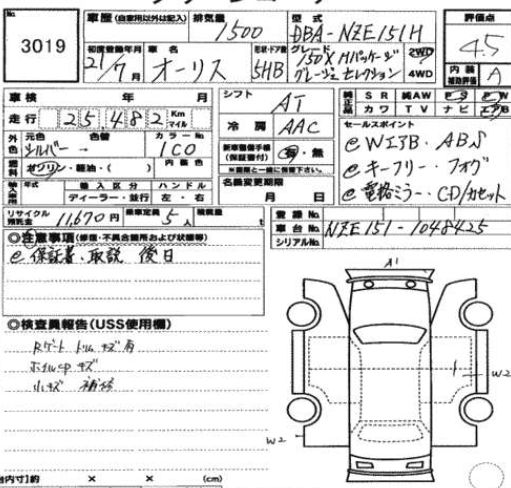 No. 3019
車歴 (自家用以外は記入) 排気量 1500 型式 DBA-NZE151H 評価点 4.5
初度登録年月 21/7月 車名 オーリス 形状・ドア数 5HB グレード 150X Mパッケージ セレクション 2WD 4WD 内装 補助評価 A
車検 年 月
走行 25,482 Km マイル
外色 元色 シルバー → 色替 カラーNo. 1C0
燃料 ガソリン・軽油・( ) 内装色
輸入車 年式 輸入区分 ディーラー・並行 ハンドル 左・右
リサイクル預託金 11,670円 乗車定員 5人 積載量 t
シフト AT
冷房 AAC
新車整備手帳 (保証書付) 有・無
※書類と一緒に保管下さい。
名義変更期限 月 日
純正品 SR 純AW PS PW
カワ TV ナビ エアB
セールスポイント
WエアB・ABS
キーフリー・フォグ
電格ミラー・CD/カセット
登録No.
車台No. NZE151-1048425
シリアルNo.
◎注意事項 (修復・不具合箇所および状態等)
保証書・取説 後日
◎検査員報告 (USS使用欄)
Rゲートトリムキズ有
ホイルcpキズ
小キズ 補修
台内寸]約 × × (cm)
A1
W2
W2